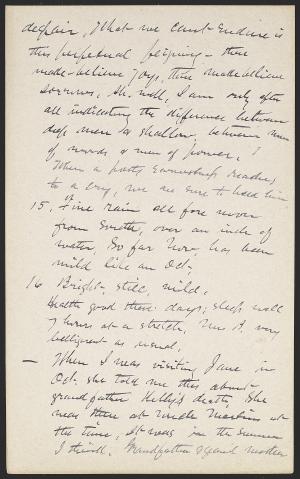 despair, What we can't endure is
this perpetual feigning - these
make-believe joys, these make believe
sorrows. Ah. well, I am only after
all indicating the difference between
deep men & shallow, between men
of words & men of power.
When a poets earnestness reaches
to a cry, we are sure to heed him.
15, Fine rain all fore noon
from South, over an inch of
water, So far Nov. has been
mild like an Oct,
16 Bright, still, mild.
Health good these days; sleep well
7 hours at a stretch, Mrs B, very
belligerent as usual,
— When I was visiting Jane in
Oct. she told me this about
grandfather Kelly's death, She
was there at Uncle Martins at
the time, It was in the summer
I think. Grandfather & grand mother